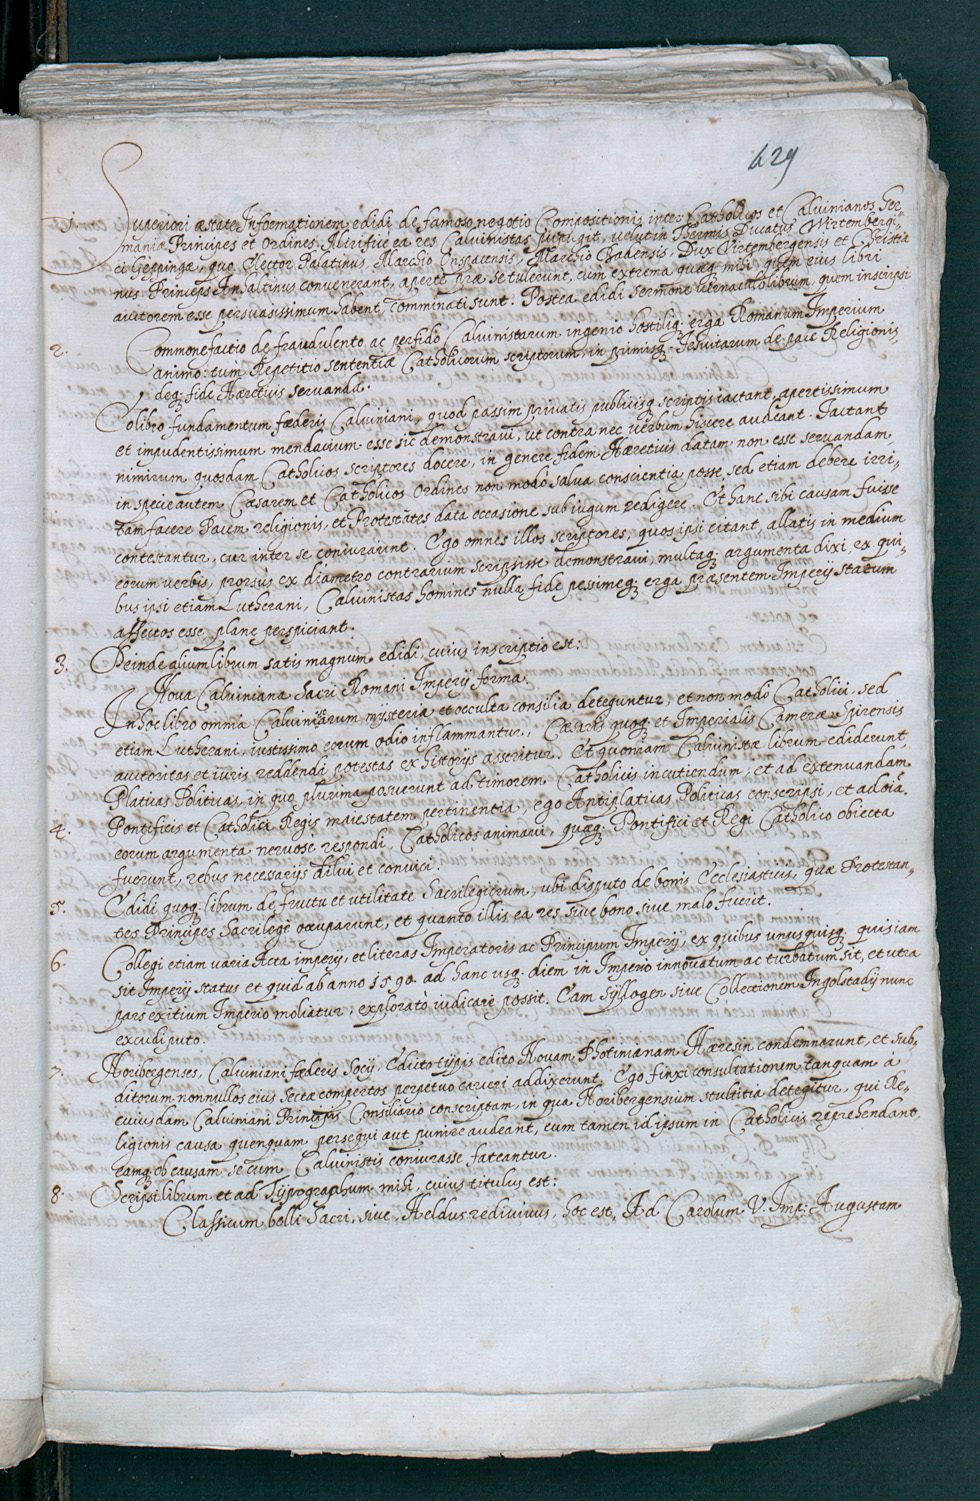 629
1. Superiori æstate Informationem edidi de famoso negotio Compositionis inter Catholicos et Calvinianos Ger-
maniæ Principes et Ordines. Mirifice ea res Calvinistas pupugit, velut in Thermis Ducatus Wirtembergi-
ci Geppingæ, quo Elector Palatinus, Marchio Onspacensis, Marchio Badensis, Dux Wirtembergensis et Christia
nus Princeps Anhaltinus convenerant, aperte præ se tulerunt, cum extrema quæq; mihi, quem eius libri
auctorem esse persuasissimum habent, comminati sunt. Postea edidi sermone vernaculo librum, quem inscripsi
2. Commonefactio de fraudulento ac perfido Calvinistarum ingenio hostiliq; erga Romanum Imperium
animo: tum Repetitio sententiæ Catholicorum scriptorum, in primisq; Jesuitarum de pace Religionis,
deq; fide Hæreticis servanda.
Eo libro fundamentum fœderis Calviniani, quod passim privatis publicisq; scriptis iactant, apertissimum
et impudentissimum mendacium esse sic demonstravi, ut contra nec verbum hiscere audeant. Jactant
nimirum quosdam Catholicos scriptores docere, in genere fidem Hæreticis datam non esse servandam,
in specie autem Cæsarem et Catholicos Ordines non modo salva conscientia posse, sed etiam debere irri-
tam facere Pacem religionis, et Protestãtes data occasione sub iugum redigere. Et hanc sibi causam fuisse
contestantur, cur inter se coniurarint. Ego omnes illos scriptores, quos ipsi citant, allatis in medium
eorum verbis, prorsus ex diametro contrarium scripsisse demonstravi, multaq; argumenta dixi, ex qui-
bus ipsi etiam Lutherani, Calvinistas homines nulla fide pessimeq; erga præsentem Imperij statum
affectos esse plane perspiciant.
3. Deinde alium librum satis magnum edidi, cuius inscriptio est:
Nova Calviniana Sacri Romani Imperij forma.
In hoc libro omnia Calvinistarum mysteria et occulta consilia deteguntur, et non modo Catholici, sed
etiam Lutherani, iustissimo eorum odio inflammantur, Cæsaris quoq; et Imperialis Cameræ Spirensis
auctoritas et iuris reddendi potestas ex historijs asseritur. Et quoniam Calvinistæ librum ediderunt,
Platicas Politicas, in quo plurima posuerunt ad timorem Catholicis incutiendum, et ad extenuandam
4. Pontificis et Catholici Regis maiestatem pertinentia, ego Antiplaticas Politicas conscripsi, et ad oĩa
eorum argumenta nervose respondi, Catholicos animavi, quæq; Pontifici et Regi Catholico obiecta
fuerunt, rebus necessarijs dilui et convici.
5. Edidi quoq; librum de fructu et utilitate Sacrilegiorum, ubi disputo de bonis Ecclesiasticis, quæ Protestan-
tes Principes Sacrilege occuparunt, et quanto illis ea res sive bono sive malo fuerit.
6. Collegi etiam varia Acta imperij, et literas Imperatoris ac Principum Imperij, ex quibus unusquisq; quis iam
sit Imperij status et quid ab anno 1590. ad hanc usq; diem in Imperio innovatum ac turbatum sit, et utra
pars exitium Imperio moliatur, explorato iudicare possit. Eam Syllogen sive Collectionem Ingolstadij nunc
excudi puto.
7. Noribergenses, Calviniani fœderis Socij, Edicto typis edito Novam Photinianam Hæresin condemnarunt, et sub-
ditorum nonnullos eius sectæ compertos perpetuo carceri addixerunt. Ego finxi consultationem tanquam à
cuiusdam Calviniani Principis Consiliario conscriptam, in qua Noribergensium stultitia detegitur, qui Re-
ligionis causa quenquam persequi aut punire audeant, cum tamen id ipsum in Catholicis reprehendant,
eamq; ob causam se cum Calvinistis coniurasse fateantur.
8. Scripsi librum et ad Typographum misi, cuius titulus est:
Classicum belli Sacri, sive, Heldus redivivus, hoc est, Ad Carolum V. Imp: Augustum